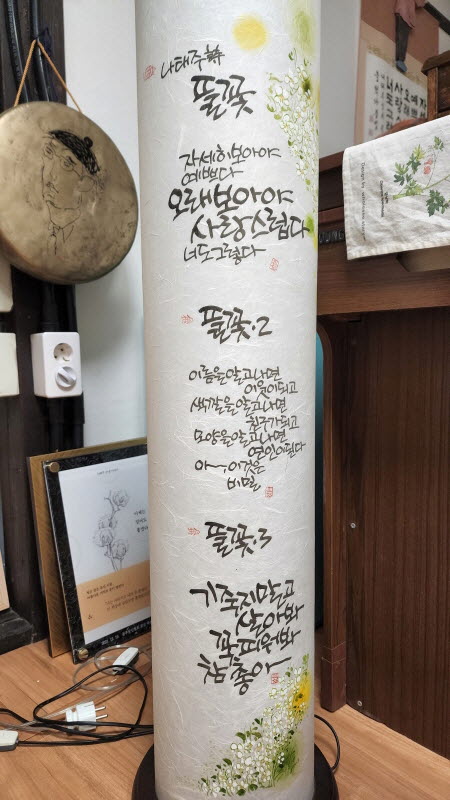 나태주 詩
풀꽃
자세히보아야
예쁘다
오래보아야
사랑스럽다
너도그렇다
풀꽃·2
이름을알고나면
이웃이되고
색깔을알고나면
친구가되고
모양을알고나면
연인이된다
아~이것은
비밀
풀꽃·3
기죽지말고
살아봐
꽃피워봐
참좋아